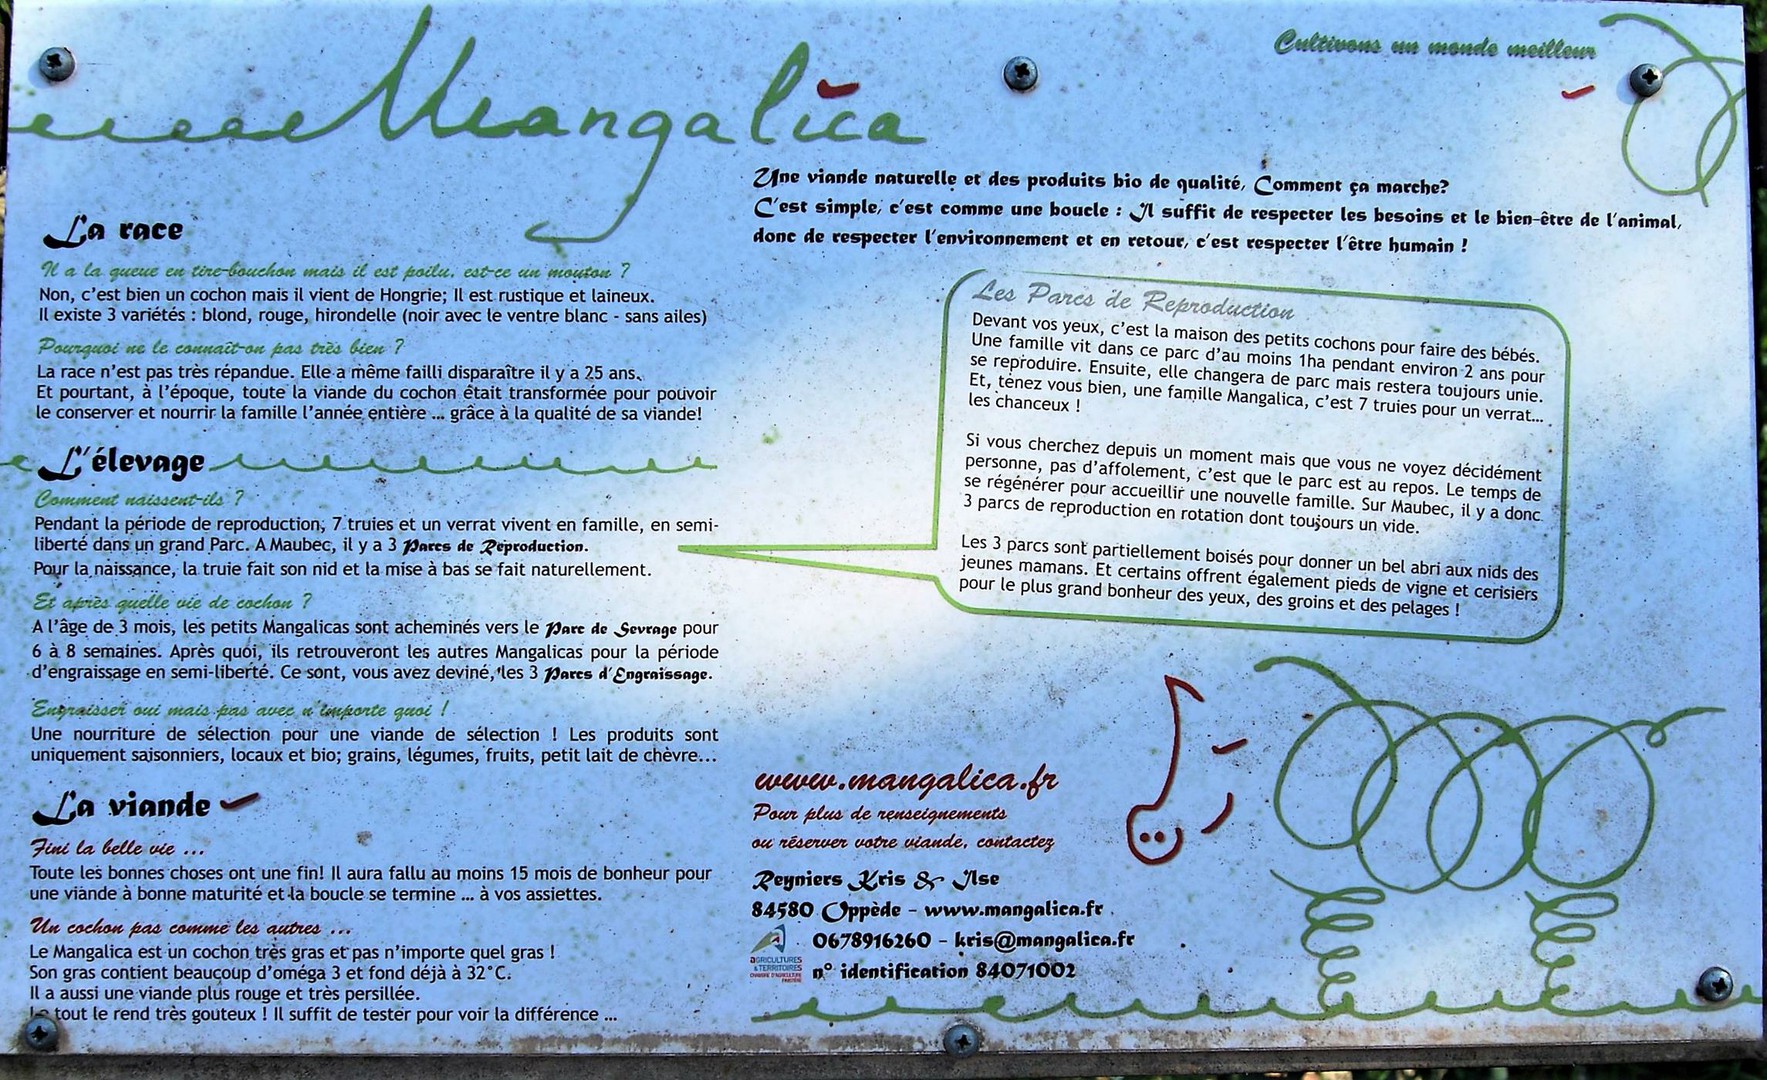 Mangalica
Cultivons un monde meilleur
Une viande naturelle et des produits bio de qualité, Comment ça marche?
C'est simple, c'est comme une boucle : Il suffit de respecter les besoins et le bien-être de l'animal,
donc de respecter l'environnement et en retour, c'est respecter l'être humain !
La race
Il a la queue en tire-bouchon mais il est poilu, est-ce un mouton ?
Non, c'est bien un cochon mais il vient de Hongrie; Il est rustique et laineux.
Il existe 3 variétés : blond, rouge, hirondelle (noir avec le ventre blanc - sans ailes)
Pourquoi ne le connaît-on pas très bien ?
La race n'est pas très répandue. Elle a même failli disparaître il y a 25 ans.
Et pourtant, à l'époque, toute la viande du cochon était transformée pour pouvoir
le conserver et nourrir la famille l'année entière ... grâce à la qualité de sa viande!
L'élevage
Comment naissent-ils ?
Pendant la période de reproduction, 7 truies et un verrat vivent en famille, en semi-
liberté dans un grand Parc. A Maubec, il y a 3 Parcs de Reproduction.
Pour la naissance, la truie fait son nid et la mise à bas se fait naturellement.
Et après quelle vie de cochon ?
A l'âge de 3 mois, les petits Mangalicas sont acheminés vers le Parc de Sevrage pour
6 à 8 semaines. Après quoi, ils retrouveront les autres Mangalicas pour la période
d'engraissage en semi-liberté. Ce sont, vous avez deviné, les 3 Parcs d'Engraissage.
Engraisser oui mais pas avec n'importe quoi !
Une nourriture de sélection pour une viande de sélection ! Les produits sont
uniquement saisonniers, locaux et bio; grains, légumes, fruits, petit lait de chèvre...
La viande
Fini la belle vie ...
Toute les bonnes choses ont une fin! Il aura fallu au moins 15 mois de bonheur pour
une viande à bonne maturité et la boucle se termine ... à vos assiettes.
Un cochon pas comme les autres ...
Le Mangalica est un cochon très gras et pas n'importe quel gras !
Son gras contient beaucoup d'oméga 3 et fond déjà à 32°C.
Il a aussi une viande plus rouge et très persillée.
Le tout le rend très gouteux ! Il suffit de tester pour voir la différence ...
Les Parcs de Reproduction
Devant vos yeux, c'est la maison des petits cochons pour faire des bébés.
Une famille vit dans ce parc d'au moins 1ha pendant environ 2 ans pour
se reproduire. Ensuite, elle changera de parc mais restera toujours unie.
Et, tenez vous bien, une famille Mangalica, c'est 7 truies pour un verrat...
les chanceux !
Si vous cherchez depuis un moment mais que vous ne voyez décidément
personne, pas d'affolement, c'est que le parc est au repos. Le temps de
se régénérer pour accueillir une nouvelle famille. Sur Maubec, il y a donc
3 parcs de reproduction en rotation dont toujours un vide.
Les 3 parcs sont partiellement boisés pour donner un bel abri aux nids des
jeunes mamans. Et certains offrent également pieds de vigne et cerisiers
pour le plus grand bonheur des yeux, des groins et des pelages !
www.mangalica.fr
Pour plus de renseignements
ou réserver votre viande, contactez
Reyniers Kris & Ilse
84580 Oppède - www.mangalica.fr
0678916260 - kris@mangalica.fr
AGRICULTURES
& TERRITOIRES
CHAMBRE D'AGRICULTURE
VAUCLUSE
n° identification 84071002